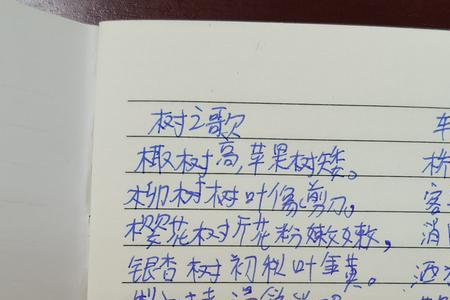 树之歌
棷树高,苹果树矮。
柳树树叶像剪刀。
樱花树开花粉嫩嫩,
银杏树初秋叶金黄。
客
消
洒